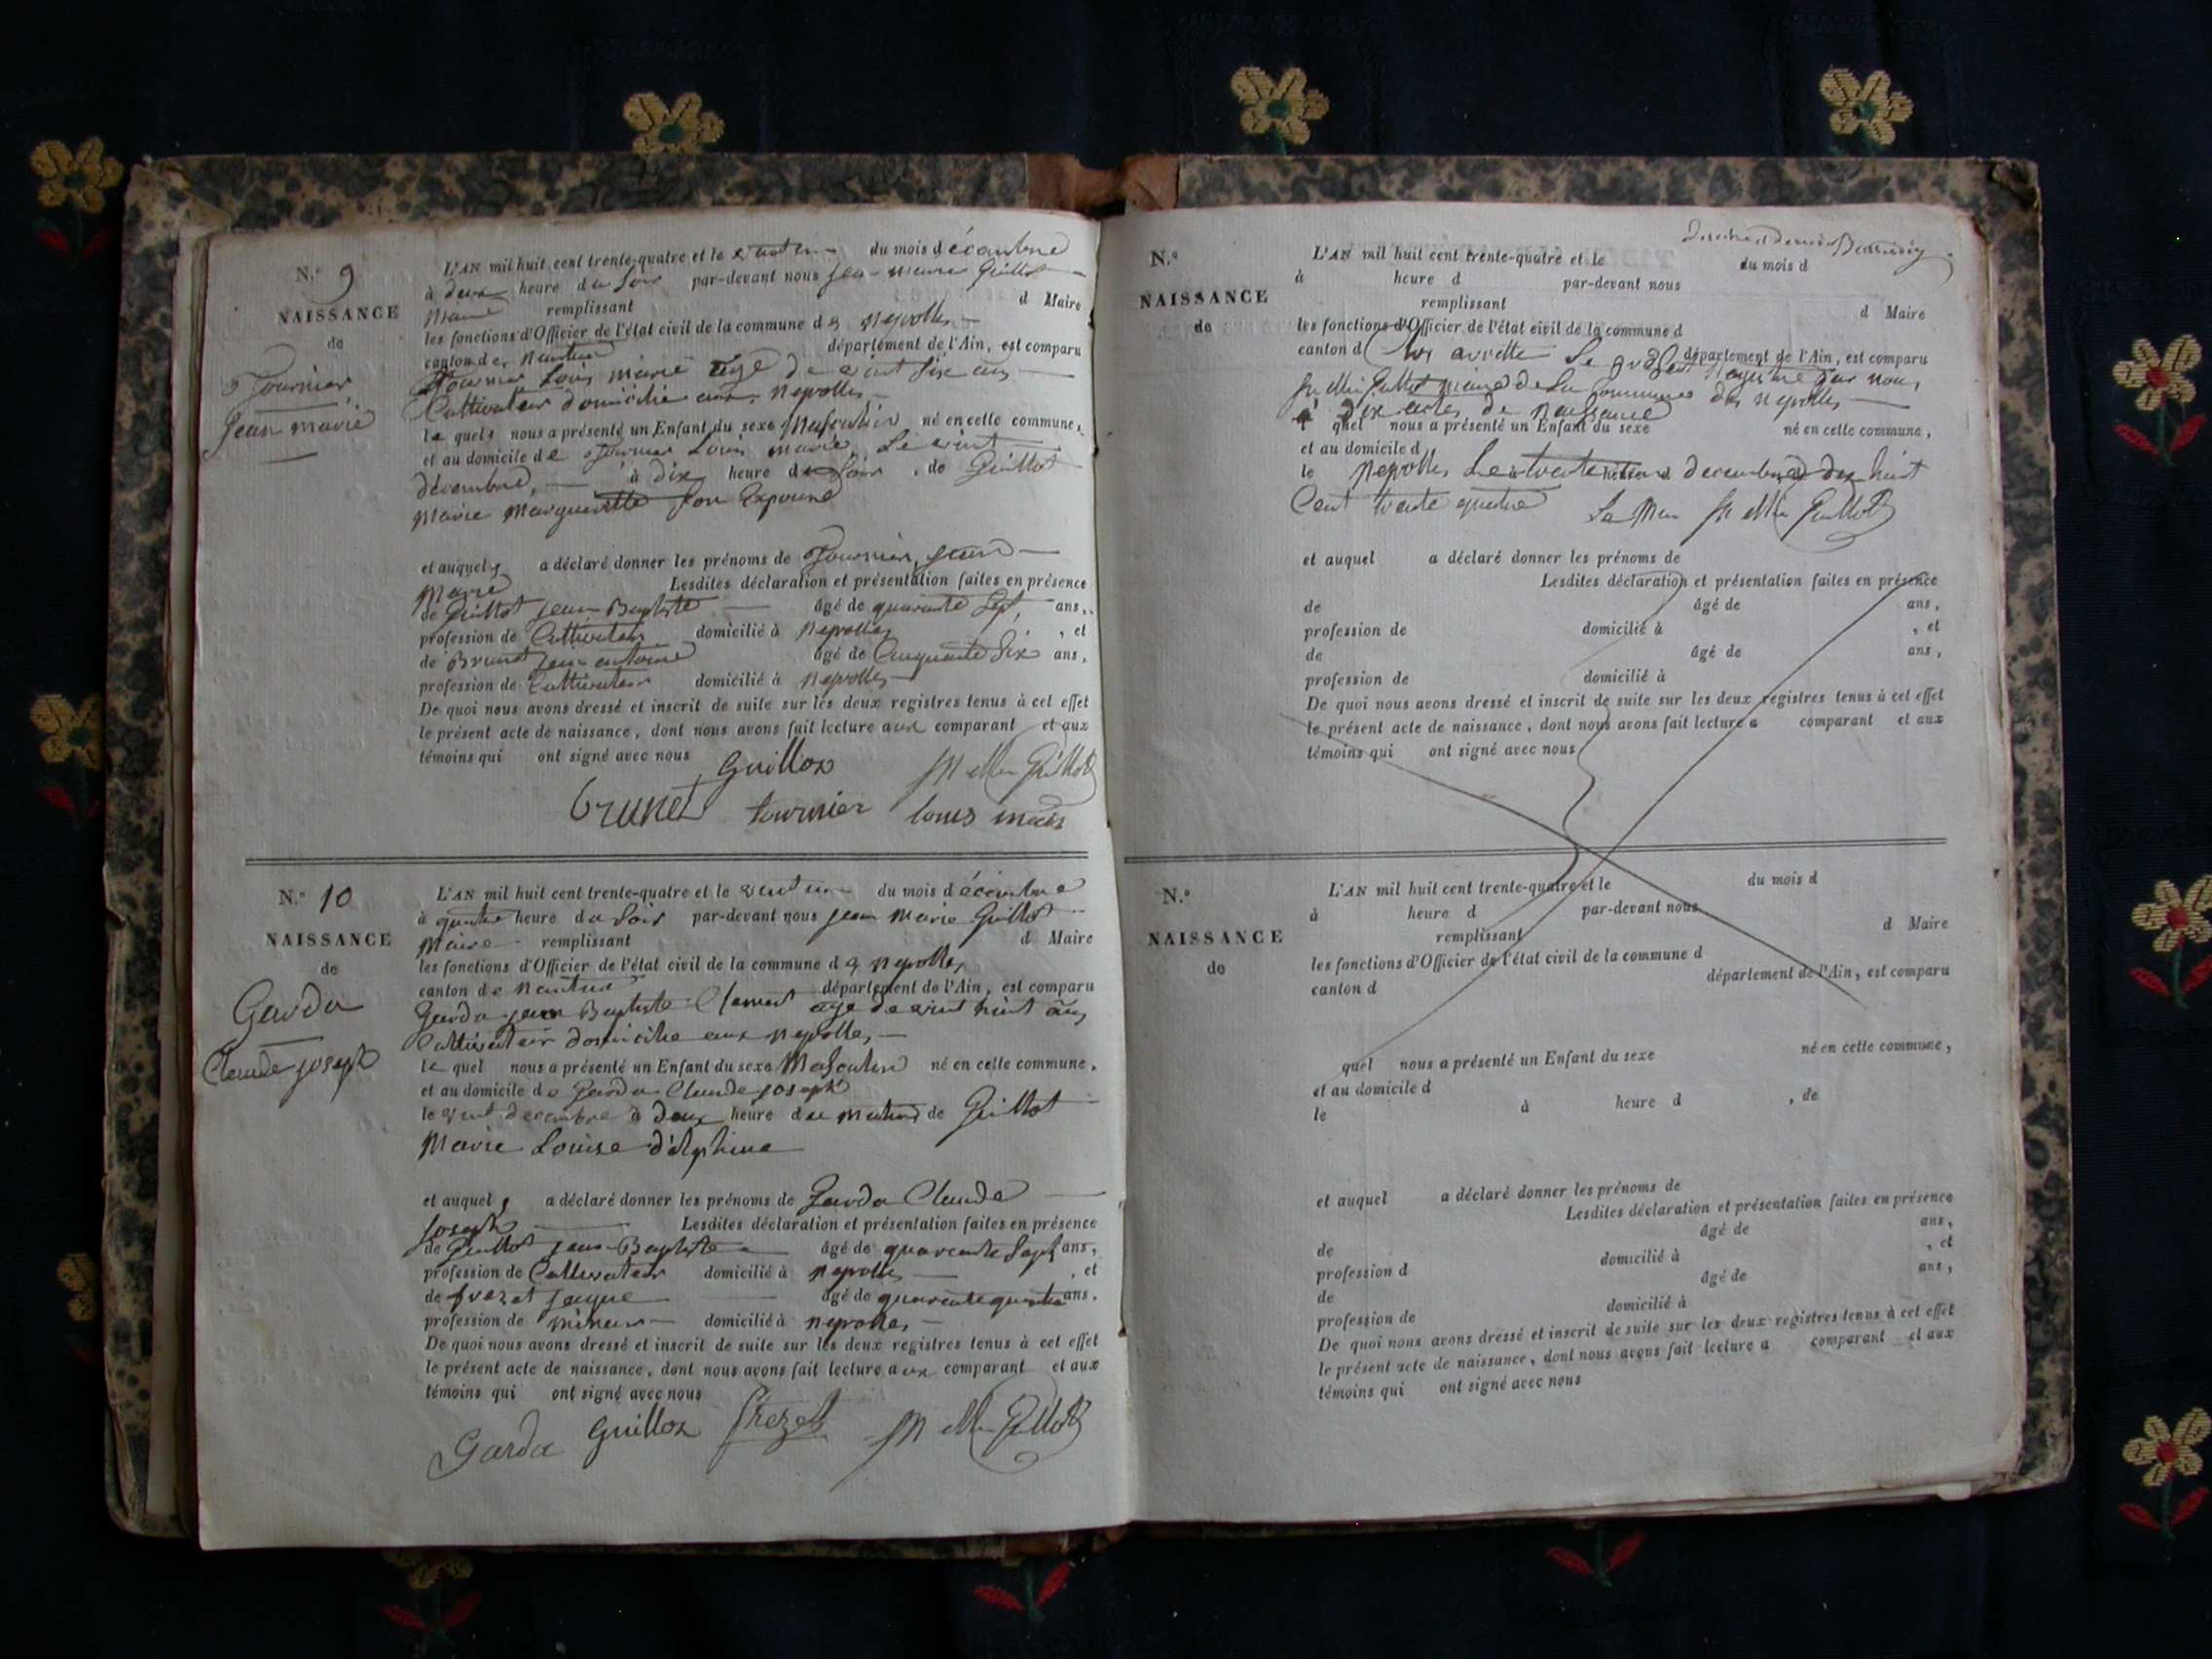 N.º 9
NAISSANCE
de
Tournier
Jean marie
L'AN mil huit cent trente-quatre et le vint un du mois d écembre
à deux heure du soir par-devant nous jean marie Guillot
Maire remplissant d Maire
les fonctions d'Officier de l'état civil de la commune d es neyrolles
canton de nantua département de l'Ain, est comparu
Tournier Louis marie age de vint six ans
Cultivateur domicilié aux neyrolles
le quel nous a présenté un Enfant du sexe Masculin né en cette commune,
et au domicile de Tournier Louis marie, Le vint
décembre, à dix heure du Soir, de Guillot
Marie Margueritte son Epouse
et auquel a déclaré donner les prénoms de Tournier jean
Marie Lesdites déclaration et présentation faites en présence
de Guillot jean Baptiste âgé de quarante Sept, ans,
profession de Cultivateur domicilié à neyrolles, et
de Brunet jean antoine âgé de Cinquante Six ans,
profession de Cultivateur domicilié à neyrolles
De quoi nous avons dressé et inscrit de suite sur les deux registres tenus à cet effet
le présent acte de naissance, dont nous avons fait lecture aux comparant et aux
témoins qui ont signé avec nous
Guilloz JM Guillot
brunet tournier louis marie
N.º 10
NAISSANCE
de
Garda
Claude joseph
L'AN mil huit cent trente-quatre et le vint un du mois d écembre
à quatre heure du soir par-devant nous jean Marie Guillot
Maire remplissant d Maire
les fonctions d'Officier de l'état civil de la commune d es neyrolles
canton de nantua département de l'Ain, est comparu
Garda jean Baptiste Clement age de vint huit ans
Cultivateur domicilie aux neyrolles,
le quel nous a présenté un Enfant du sexe Masculin né en cette commune,
et au domicile de Garda Claude joseph
le vint decembre à deux heure du matin de Guillot
Marie Louise délphine
et auquel a déclaré donner les prénoms de Garda Claude
joseph Lesdites déclaration et présentation faites en présence
de Guillot jean Baptiste âgé de quarente Sept ans,
profession de Cultivateur domicilié à neyrolles, et
de frezet jaque âgé de quarente quatre ans,
profession de mineur domicilié à neyrolles,
De quoi nous avons dressé et inscrit de suite sur les deux registres tenus à cet effet
le présent acte de naissance, dont nous avons fait lecture aux comparant et aux
témoins qui ont signé avec nous
Garda Guilloz frezet JM Guillot
N.º
NAISSANCE
de
L'AN mil huit cent trente-quatre et le du mois d
à heure d par-devant nous
remplissant d Maire
les fonctions d'Officier de l'état civil de la commune d
canton d département de l'Ain, est comparu
Clos arretté Le présent registre par nous,
Guillot maire de La Commune des neyrolles
à dix actes de naissance
quel nous a présenté un Enfant du sexe né en cette commune,
et au domicile d
le à heure d
neyrolles Le trente un decembre dix huit
Cent trente quatre Le Maire JM Guillot
et auquel a déclaré donner les prénoms de
Lesdites déclaration et présentation faites en présence
de âgé de ans,
profession de domicilié à , et
de âgé de ans,
profession de domicilié à
De quoi nous avons dressé et inscrit de suite sur les deux registres tenus à cet effet
le présent acte de naissance, dont nous avons fait lecture a comparant et aux
témoins qui ont signé avec nous
N.º
NAISSANCE
de
L'AN mil huit cent trente-quatre et le du mois d
à heure d par-devant nous
remplissant d Maire
les fonctions d'Officier de l'état civil de la commune d
canton d département de l'Ain, est comparu
quel nous a présenté un Enfant du sexe né en cette commune,
et au domicile d
le à heure d , de
et auquel a déclaré donner les prénoms de
Lesdites déclaration et présentation faites en présence
de âgé de ans,
profession d domicilié à , et
de âgé de ans,
profession de domicilié à
De quoi nous avons dressé et inscrit de suite sur les deux registres tenus à cet effet
le présent acte de naissance, dont nous avons fait lecture a comparant et aux
témoins qui ont signé avec nous